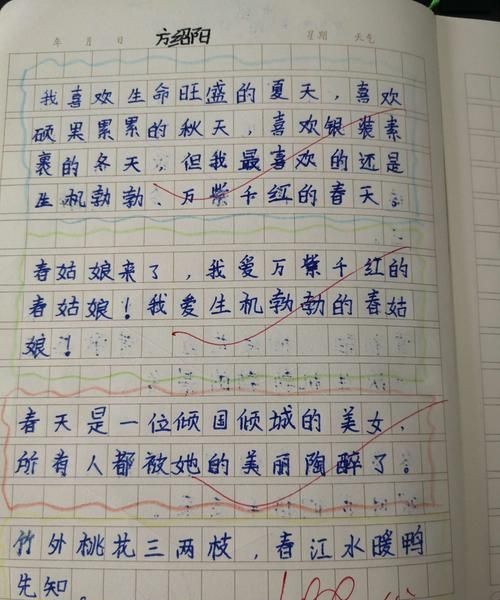 年 月 日 方绍阳 星期 天气
我喜欢生命旺盛的夏天，喜欢
硕果累累的秋天，喜欢银装素
裹的冬天，但我最喜欢的还是
生机勃勃、万紫千红的春天。
春姑娘来了，我爱万紫千红的
春姑娘！我爱生机勃勃的春姑
娘！
春天是一位倾国倾城的美女，
所有人都被她的美丽陶醉了。
竹外桃花三两枝，春江水暖鸭
先知。
100